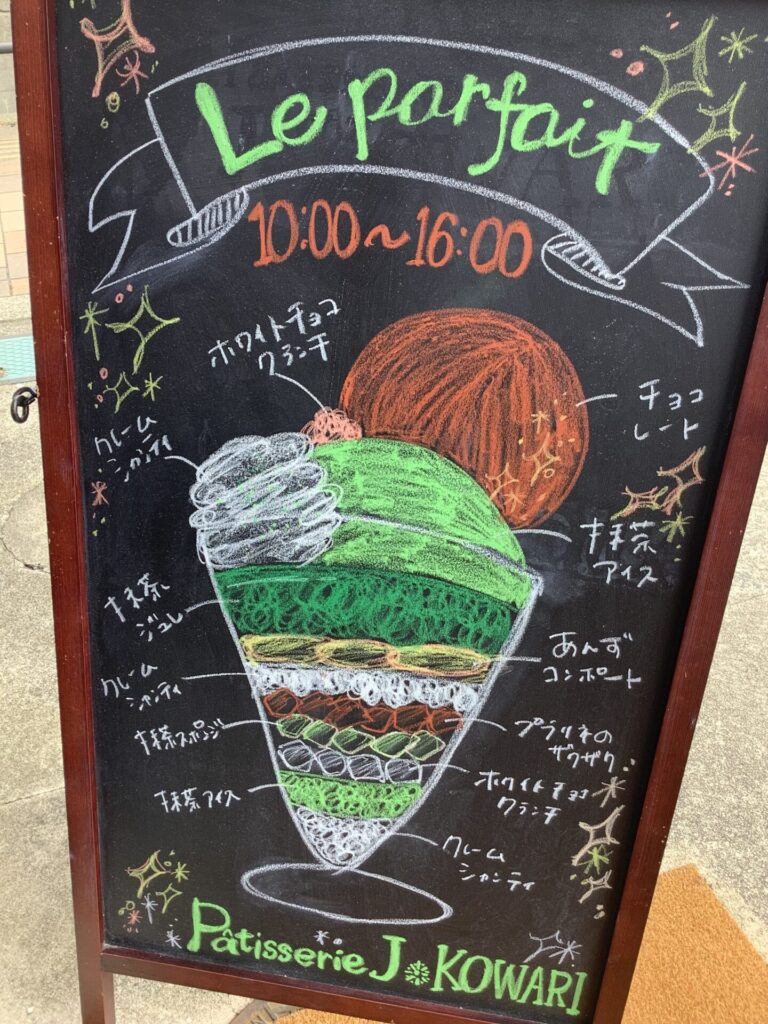 Le parfait
10:00～16:00
ホワイトチョコ
クランチ
チョコ
レート
クレーム
シャンティ
抹茶
アイス
抹茶
ジュレ
あんず
コンポート
クレーム
シャンティ
プラリネの
ザクザク
抹茶スポンジ
ホワイトチョコ
クランチ
抹茶アイス
クレーム
シャンティ
Pâtisserie J KOWARI